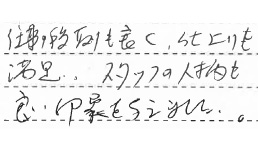 待期的段取りも良く、仕上りも
満足.. スタッフの人柄も
良い印象を与えました。